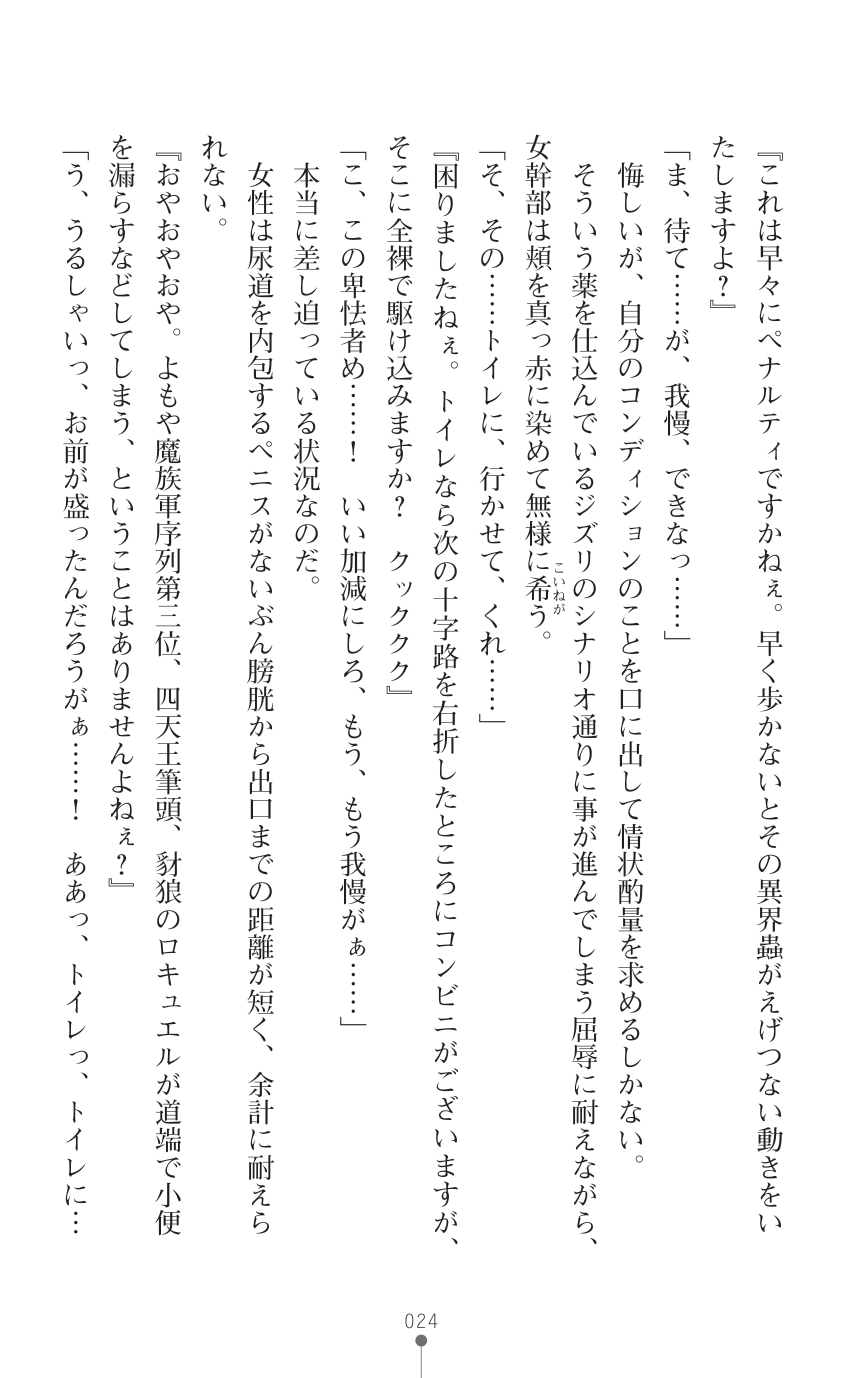 『これは早々にペナルティですかねぇ。早く歩かないとその異界蟲がえげつない動きをい
たしますよ?』
「ま、待て……が、我慢、できなっ……」
悔しいが、自分のコンディションのことを口に出して情状酌量を求めるしかない。
そういう薬を仕込んでいるジズリのシナリオ通りに事が進んでしまう屈辱に耐えながら、
女幹部は頬を真っ赤に染めて無様に希う。
こいねが
「そ、その……トイレに、行かせて、くれ……」
『困りましたねぇ。トイレなら次の十字路を右折したところにコンビニがございますが、
そこに全裸で駆け込みますか? クックククク』
「こ、この卑怯者め……! いい加減にしろ、もう、もう我慢がぁ……」
本当に差し迫っている状況なのだ。
女性は尿道を内包するペニスがないぶん膀胱から出口までの距離が短く、余計に耐えら
れない。
『おやおやおや。よもや魔族軍序列第三位、四天王筆頭、豺狼のロキュエルが道端で小便
を漏らすなどしてしまう、ということはありませんよねぇ?』
「う、うるしゃいっ、お前が盛ったんだろうがぁ……! ああっ、トイレっ、トイレに…
024